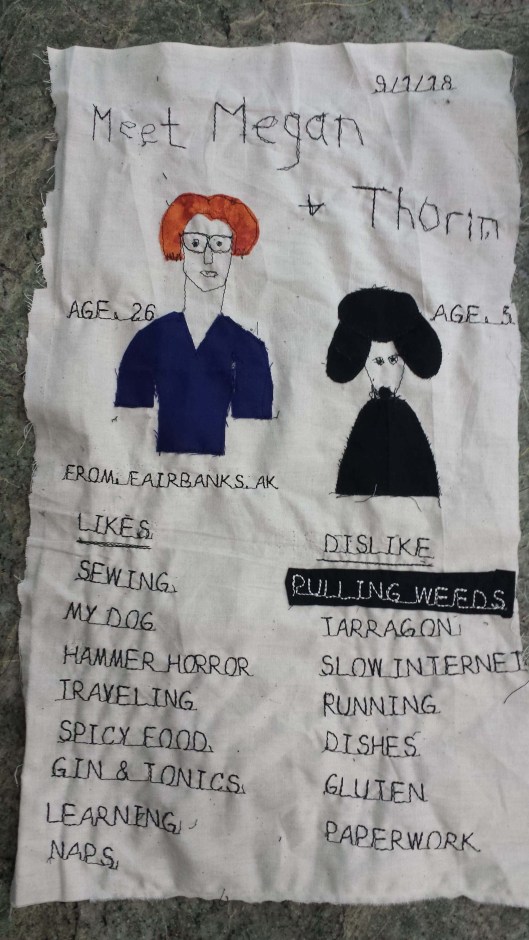 9/7/18
Meet Megan
+ Thorin
AGE. 26
AGE. 5
FROM. FAIRBANKS. AK
LIKES
SEWING
MY DOG
HAMMER HORROR
TRAVELING
SPICY FOOD
GIN & TONICS
LEARNING
NAPS
DISLIKE
PULLING WEEDS
TARRAGON
SLOW INTERNET
RUNNING
DISHES
GLUTEN
PAPERWORK